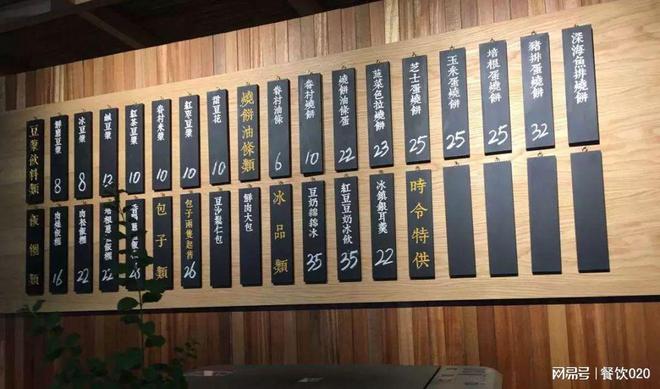 豆漿飲料類
鮮磨豆漿 8
冰豆漿 8
鹹豆漿 12
紅茶豆漿 10
眷村米漿 10
紅枣豆漿 10
甜豆花 10
燒餅油條類
眷村油條 6
眷村燒餅 10
燒餅油條蛋 22
蔬菜色拉燒餅 23
芝士蛋燒餅 25
玉米蛋燒餅 25
培根蛋燒餅 25
豬排蛋燒餅 32
深海魚排燒餅
飯糰類
16
22
培根蔥飯糰 22
包子類
包子兩隻起售 26
豆沙鬆仁包
鮮肉大包
冰品類
豆奶綿綿冰 35
紅豆豆奶冰飲 35
冰鎮銀耳羹 22
時令特供
网易号 | 餐饮020